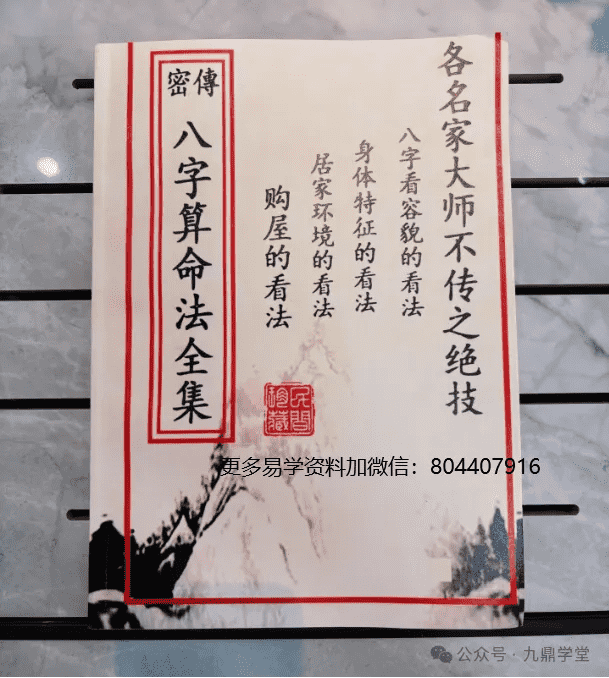 各名家大师不传之绝技
八字看容貌的看法
身体特征的看法
居家环境的看法
购屋的看法
民間珍藏
密傳
八字算命法全集
更多易学资料加微信：804407916
公众号·九鼎学堂